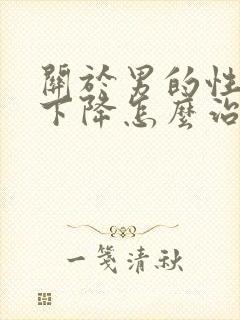 關於男的性
下降怎麼治
一箋清秋